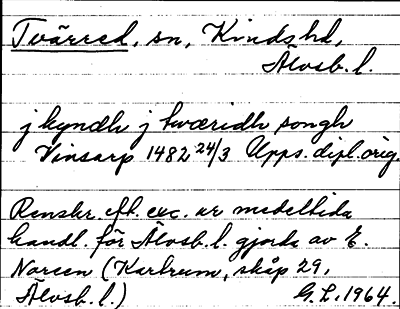 Tvärred, sn, Kinds hd,
Älvsb. l.
j kyndh j twæridh songh
Vinsarp 1482 24/3 Upps. dipl. orig.
Renskr. eft. exc. ur medeltida
handl. för Älvsb. l. gjorda av E.
Noreen (Kartrum, skåp 29,
Älvsb. l.)
G. L. 1964.